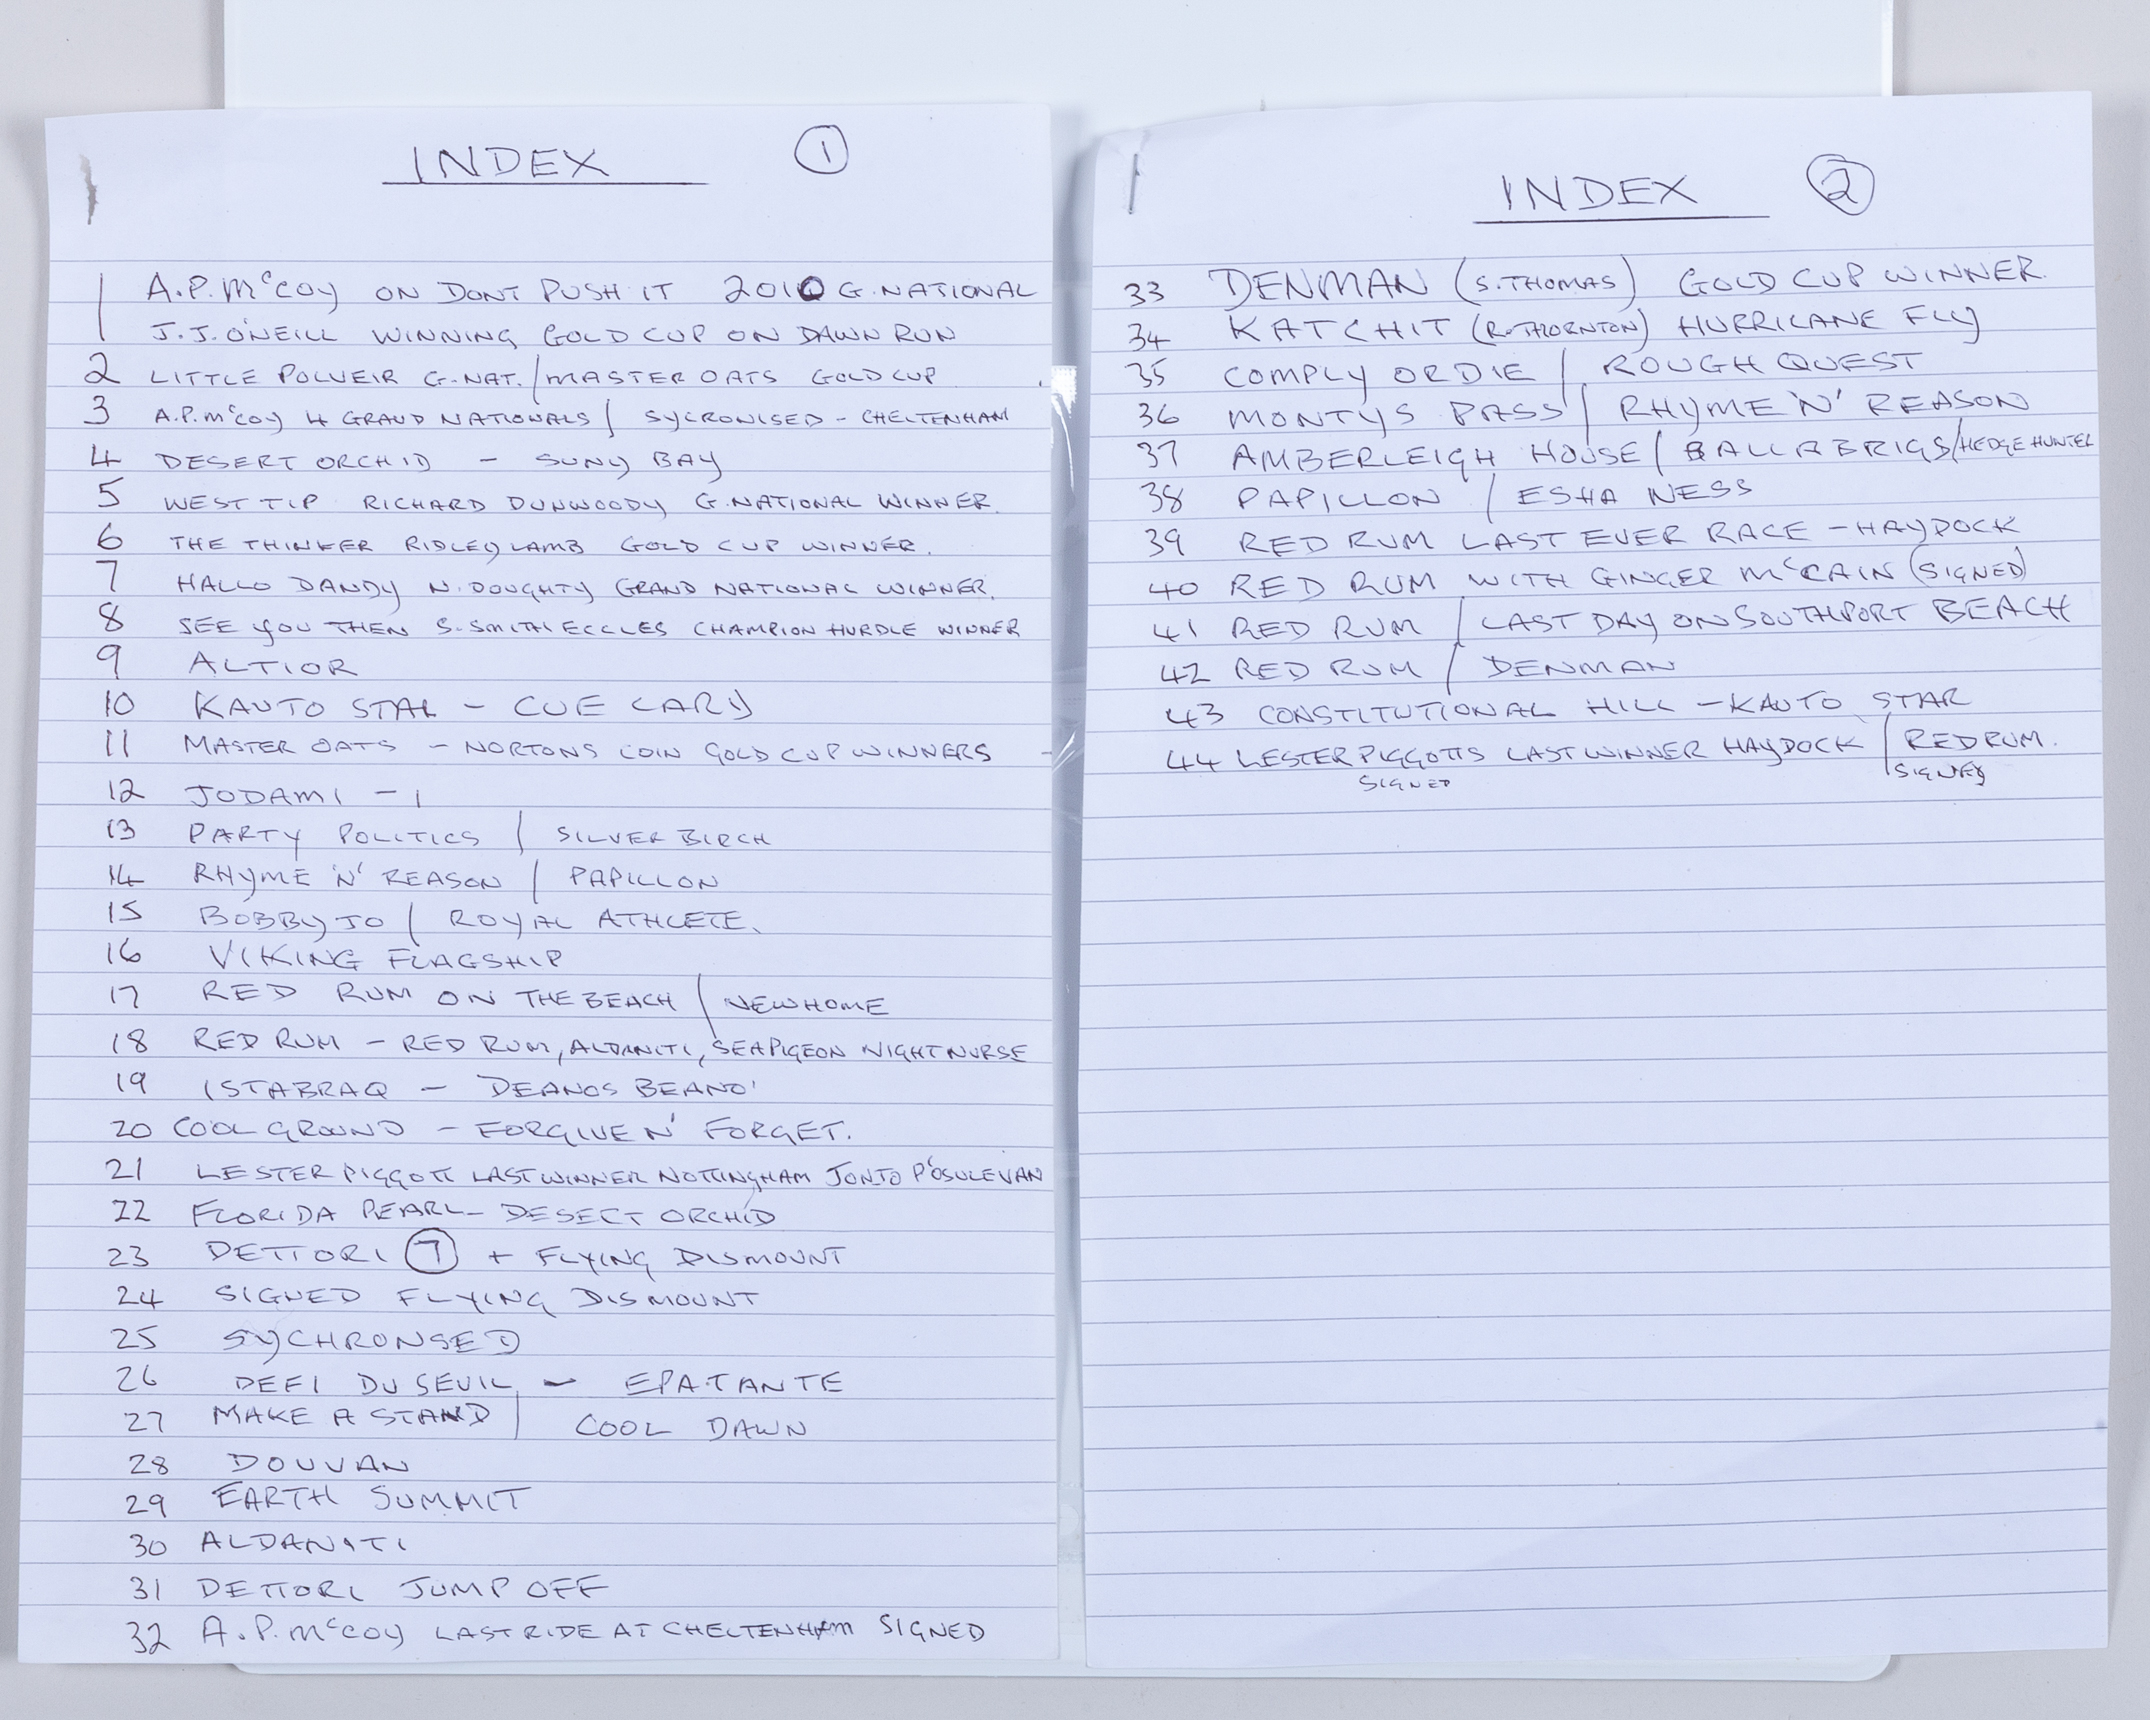 INDEX 1
1 A.P. McCOY ON DONT PUSH IT 2010 G. NATIONAL
J.J. O'NEILL WINNING GOLD CUP ON DAWN RUN
2 LITTLE POLVEIR G.NAT. / MASTER OATS GOLD CUP
3 A.P. McCOY 4 GRAND NATIONALS / SYCRONISED - CHELTENHAM
4 DESERT ORCHID - SUNY BAY
5 WEST TIP RICHARD DUNWOODY G.NATIONAL WINNER.
6 THE THINKER RIDLEY LAMB GOLD CUP WINNER.
7 HALLO DANDY N. DOUGHTY GRAND NATIONAL WINNER.
8 SEE YOU THEN S. SMITH ECCLES CHAMPION HURDLE WINNER
9 ALTIOR
10 KAUTO STAR - CUE CARD
11 MASTER OATS - NORTONS COIN GOLD CUP WINNERS
12 JODAMI - 1
13 PARTY POLITICS / SILVER BIRCH
14 RHYME 'N' REASON / PAPILLON
15 BOBBY JO / ROYAL ATHLETE.
16 VIKING FLAGSHIP
17 RED RUM ON THE BEACH / NEW HOME
18 RED RUM - RED RUM, ALDANITI, SEA PIGEON NIGHT NURSE
19 ISTABRAQ - DEANOS BEANO'
20 COOL GROUND - FORGIVE N' FORGET.
21 LESTER PIGGOTT LAST WINNER NOTTINGHAM JONJO P'OSULEVAN
22 FLORIDA PEARL - DESECT ORCHID
23 DETTORI 7 + FLYING DISMOUNT
24 SIGNED FLYING DISMOUNT
25 SYCHRONSED
26 DEFI DU SEUIL - EPATANTE
27 MAKE A STAND / COOL DAWN
28 DOUVAN
29 EARTH SUMMIT
30 ALDANITI
31 DETTORI JUMP OFF
32 A.P. McCOY LAST RIDE AT CHELTENHAM SIGNED
INDEX 2
33 DENMAN (S. THOMAS) GOLD CUP WINNER.
34 KATCHIT (R. THORNTON) HURRICANE FLY
35 COMPLY OR DIE / ROUGH QUEST
36 MONTYS PASS / RHYME 'N' REASON
37 AMBERLEIGH HOUSE / BALLABRIGS / HEDGE HUNTER
38 PAPILLON / ESHA NESS
39 RED RUM LAST EVER RACE - HAYDOCK
40 RED RUM WITH GINGER McCAIN (SIGNED)
41 RED RUM / LAST DAY ON SOUTHPORT BEACH
42 RED RUM / DENMAN
43 CONSTITUTIONAL HILL - KAUTO STAR
44 LESTER PIGGOTTS LAST WINNER HAYDOCK / RED RUM.
SIGNED SIGNED